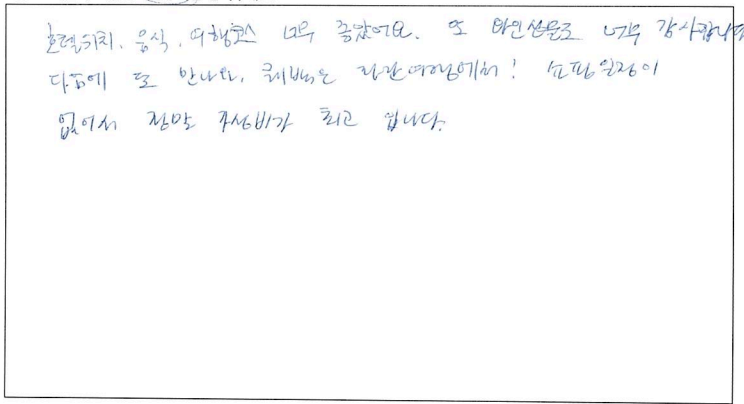 호텔위치, 음식, 여행코스 너무 좋았어요. 또 와인선물로 너무 감사합니다
다음에 또 만나요, 패키지는 여행에서! 쇼핑일정이
없어서 정말 가성비가 최고 입니다.